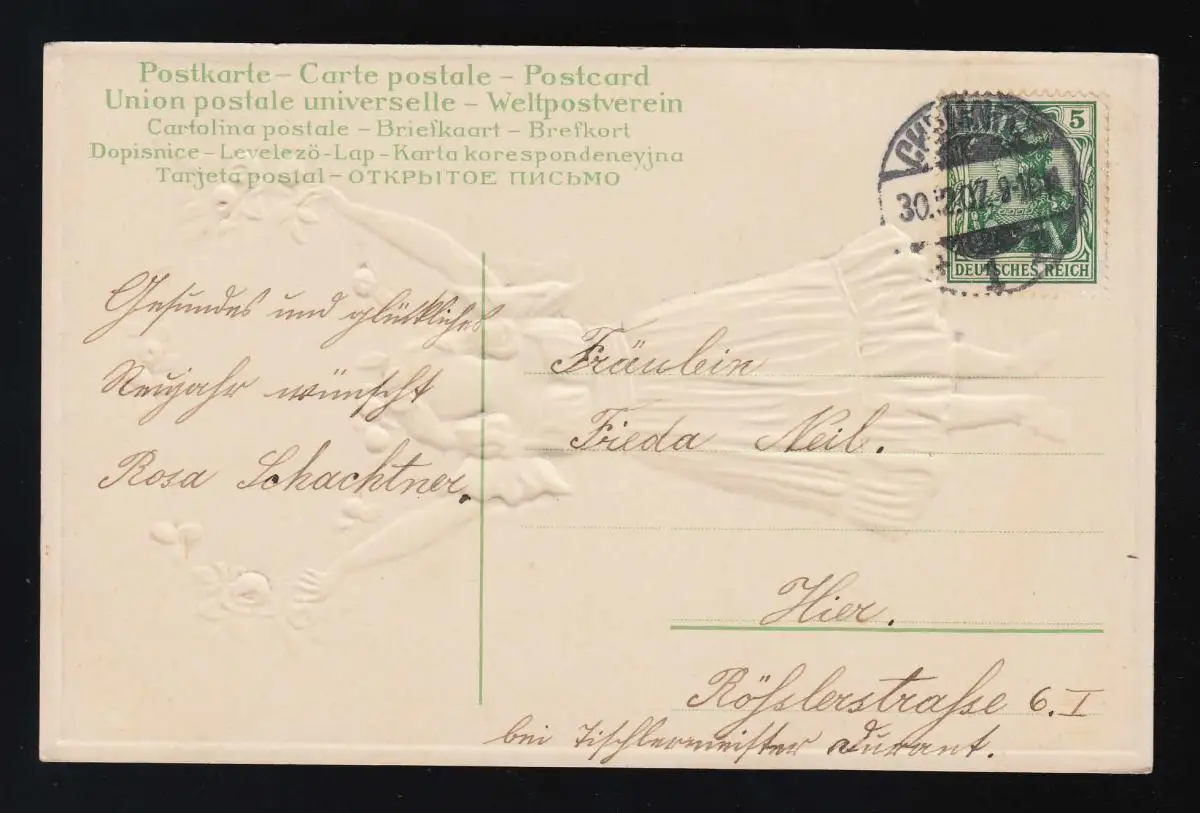 Postkarte – Carte postale – Postcard
Union postale universelle – Weltpostverein
Cartolina postale – Briefkaart – Brefkort
Dopisnice – Levelezö-Lap – Karta korespondeneyjna
Tarjeta postal – ОТКРЫТОЕ ПИСЬМО
CHEMNITZ
30.12.07. 9-10
1
5
DEUTSCHES REICH
Gesundes und glückliches
Neujahr wünscht
Rosa Schachtner.
Fräulein
Frieda Neil.
Hier.
Rößslerstrasse 6. I
bei Tischlermeister Durant.